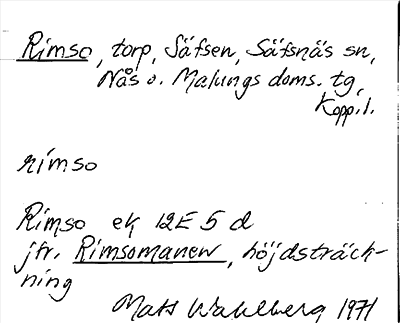 Rimso, torp, Säfsen, Säfsnäs sn,
Nås o. Malungs doms. tg,
Kopp.l.
rimso
Rimso ek 12E 5 d
jfr. Rimsomanen, höjdsträck-
ning
Mats Wahlberg 1971